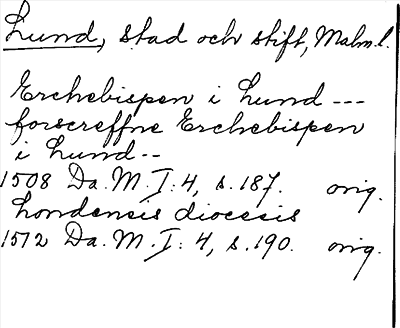 Lund, stad och stift, Malm.l.
Erchebispen i Lund ---
forscreffne Erchebispen
i Lund--
1508 Da.M.I:4, s.187. orig.
Londensis diocesis
1512 Da.M.I:4, s.190. orig.